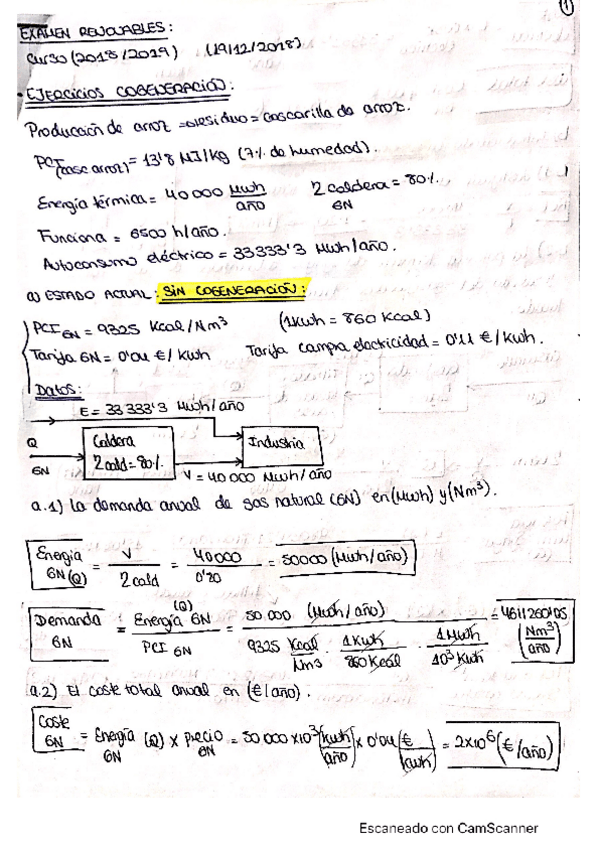 1
EXAMEN RENOVABLES:
Curso (2018/2019) (19/12/2018)
• EJERCICIOS COGENERACIÓN:
Producción de arroz → residuo = cascarilla de arroz.
PCI (casc arroz) = 13'8 MJ/kg (7% de humedad).
Energía térmica = 40000 Mwh/año η caldera GN = 80%.
Funciona = 6500 h/año.
Autoconsumo eléctrico = 33333'3 Mwh/año.
a) ESTADO ACTUAL: SIN COGENERACIÓN:
PCI GN = 9325 Kcal/Nm³ (1Kwh = 860 Kcal)
Tarifa GN = 0'04 €/Kwh Tarifa compra electricidad = 0'11 €/Kwh.
Datos:
E = 33333'3 Mwh/año
Q GN Caldera η cald = 80% Industria
V = 40000 Mwh/año
a.1) La demanda anual de gas natural (GN) en (Mwh) y (Nm³).
Energía GN (Q) = V / η cald = 40000 / 0'80 = 50000 (Mwh/año)
Demanda GN = Energía (Q) GN / PCI GN = 50.000 (Mwh/año) / 9325 Kcal/Nm³ · 1Kwh/860Kcal · 1Mwh/10³Kwh = 4611260'05 (Nm³/año)
a.2) El coste total anual en (€/año).
Coste GN = Energía GN (Q) x precio GN = 50.000x10³ (kwh/año) x 0'04 (€/kwh) = 2x10⁶ (€/año)
Escaneado con CamScanner